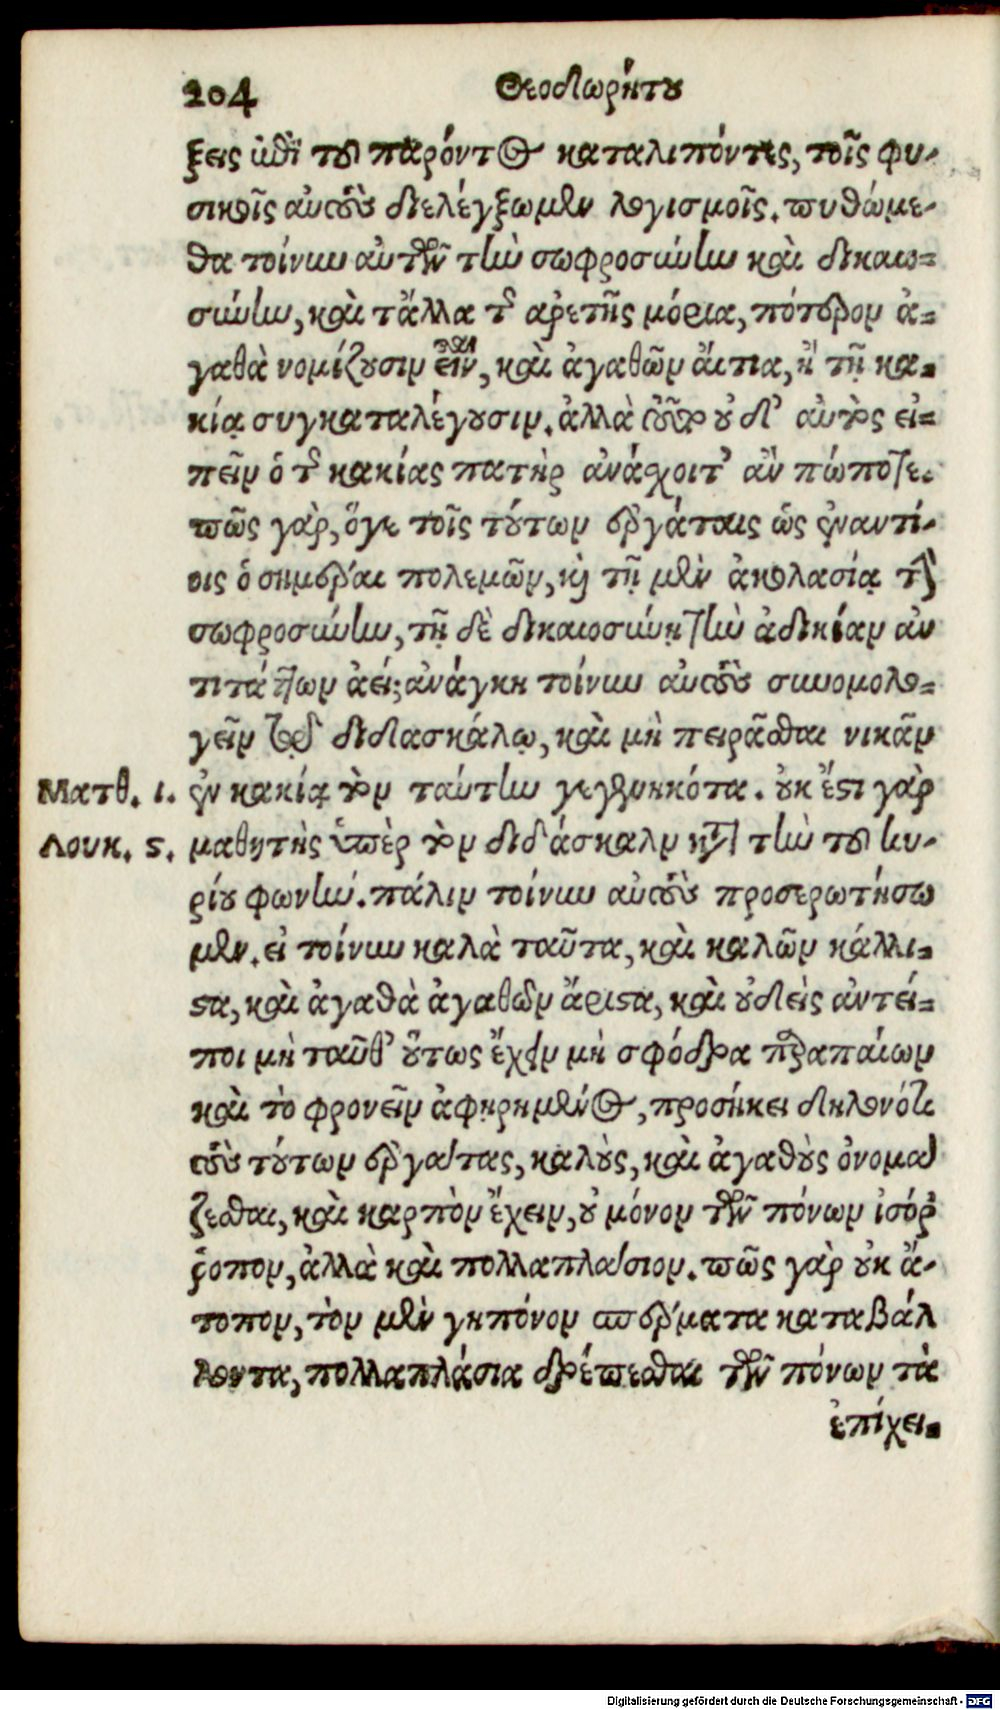 204 Θεοδωρήτου
ξεις ἐπὶ τοῦ παρόντος καταλιπόντες, τοῖς φυ-
σικοῖς αὐτοὺς διελέγξωμεν λογισμοῖς. πυθώμε-
θα τοίνυν αὐτῶν τὴν σωφροσύνην καὶ δικαιο-
σύνην, καὶ τἄλλα τῆς ἀρετῆς μόρια, πότερον ἀ-
γαθὰ νομίζουσιν εἶναι, καὶ ἀγαθῶν αἴτια, ἢ τῇ κα-
κίᾳ συγκαταλέγουσιν. ἀλλὰ τοῦτο οὐδ' αὐτὸς εἰ-
πεῖν ὁ τῆς κακίας πατὴρ ἀνάσχοιτ' ἂν πώποτε.
πῶς γὰρ, ὅγε τοῖς τούτων ἐργάταις ὡς ἐναντί-
οις ὁσημέραι πολεμῶν, καὶ τῇ μὲν ἀκολασίᾳ τὴν
σωφροσύνην, τῇ δὲ δικαιοσύνῃ τὴν ἀδικίαν ἀν
τιτάττων ἀεί; ἀνάγκη τοίνυν αὐτοὺς συνομολο-
γεῖν τῷ διδασκάλῳ, καὶ μὴ πειρᾶσθαι νικᾶν
Ματθ. ι. ἐν κακίᾳ τὸν ταύτην γεγεννηκότα. οὐκ ἔστι γὰρ
Λουκ. ς. μαθητὴς ὑπὲρ τὸν διδάσκαλον κατὰ τὴν τοῦ κυ-
ρίου φωνήν. πάλιν τοίνυν αὐτοὺς προσερωτήσω
μεν. εἰ τοίνυν καλὰ ταῦτα, καὶ καλῶν κάλλι-
στα, καὶ ἀγαθὰ ἀγαθῶν ἄριστα, καὶ οὐδεὶς ἀντεί-
ποι μὴ ταῦθ' οὕτως ἔχειν μὴ σφόδρα παραπαίων
καὶ τὸ φρονεῖν ἀφῃρημένος, προσήκει δηλονότι
τοὺς τούτων ἐργάτας, καλοὺς, καὶ ἀγαθοὺς ὀνομά
ζεσθαι, καὶ καρπὸν ἔχειν, οὐ μόνον τῶν πόνων ἰσόρ
ῥοπον, ἀλλὰ καὶ πολλαπλάσιον. πῶς γὰρ οὐκ ἄ-
τοπον, τὸν μὲν γηπόνον σπέρματα καταβάλ
λοντα, πολλαπλάσια δρέπεσθαι τῶν πόνων τὰ
ἐπίχει-
Digitalisierung gefördert durch die Deutsche Forschungsgemeinschaft - DFG